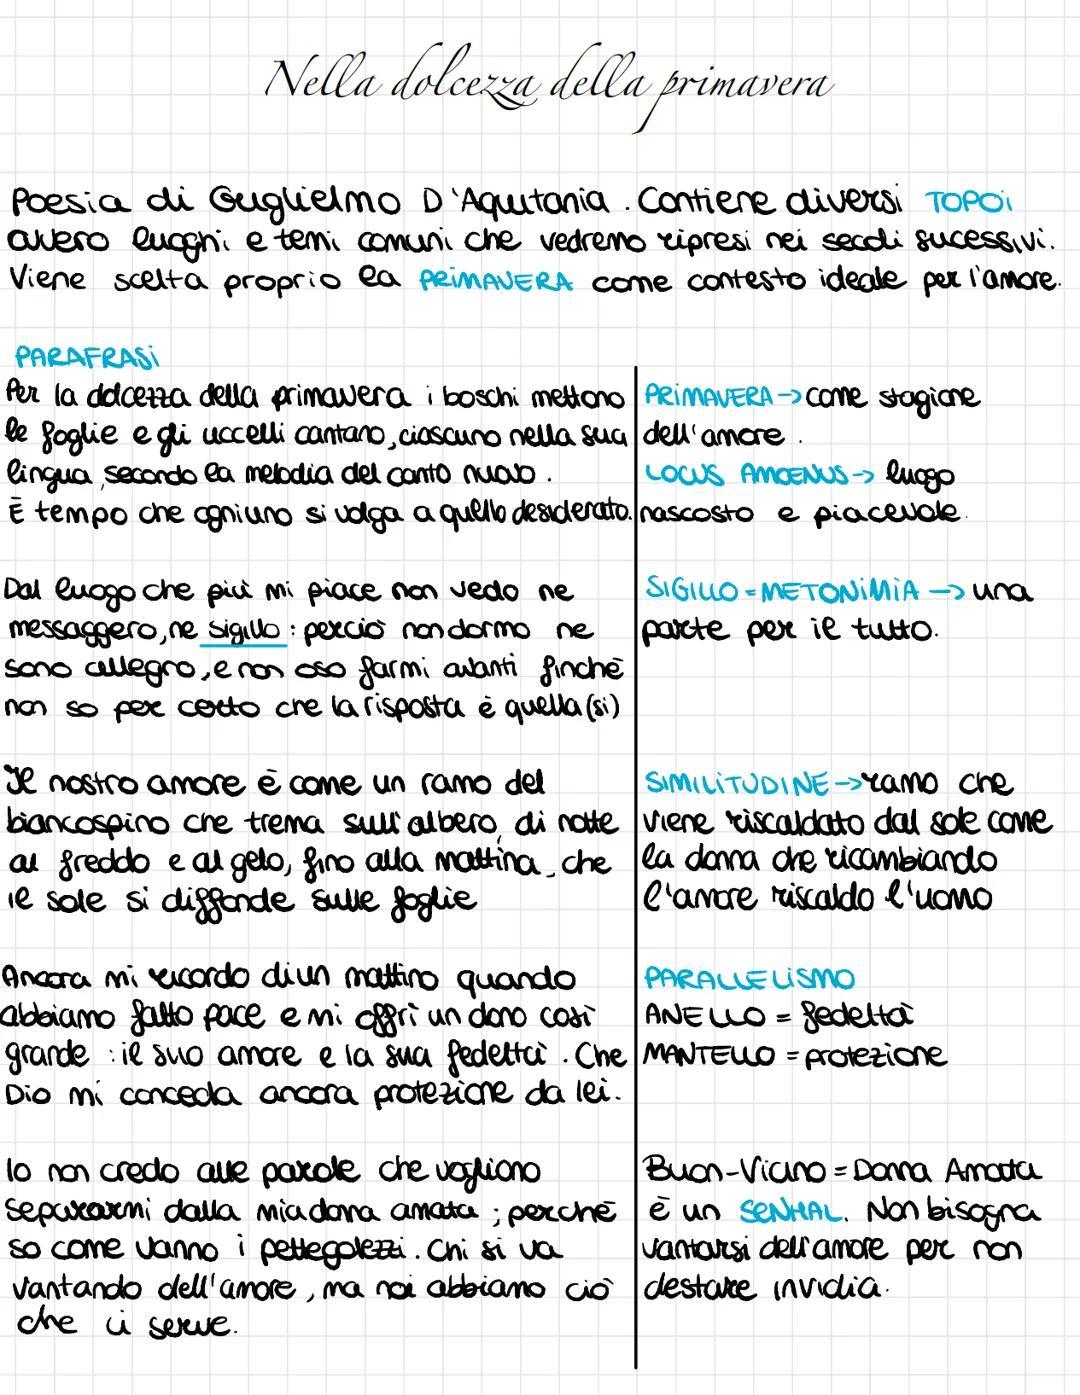 Nella dolcezza della primavera
Poesia di Guglielmo D'Aquitania. Contiene diversi TOPOi
ovvero luoghi e temi comuni che vedremo ripresi nei secoli sucessivi.
Viene scelta proprio la PRiMAVERA come contesto ideale per l'amore.
PARAFRASi
Per la dolcezza della primavera i boschi mettono
le foglie e gli uccelli cantano, ciascuno nella sua
lingua, secondo la melodia del canto nuovo.
È tempo che ogniuno si volga a quello desiderato.
PRiMAVERA -> come stagione
dell'amore.
LOCUS AMOENUS -> luogo
nascosto e piacevole.
Dal luogo che più mi piace non vedo ne
messaggero, ne sigillo: perciò non dormo ne
sono allegro, e non oso farmi avanti finchè
non so per certo che la risposta è quella (si)
SIGILLO = METONiMiA -> una
parte per il tutto.
Il nostro amore è come un ramo del
biancospino che trema sull'albero, di notte
al freddo e al gelo, fino alla mattina, che
il sole si diffonde sulle foglie
SIMILiTUDINE -> ramo che
viene riscaldato dal sole come
la donna che ricambiando
l'amore riscalda l'uomo
Ancora mi ricordo di un mattino quando
abbiamo fatto pace e mi offrì un dono così
grande: il suo amore e la sua fedeltà. Che
Dio mi conceda ancora protezione da lei.
PARALLELiSMO
ANELLO = fedeltà
MANTELLO = protezione
Io non credo alle parole che vogliono
separarmi dalla mia donna amata; perchè
so come vanno i pettegolezzi. Chi si va
vantando dell'amore, ma noi abbiamo ciò
che ci serve.
Buon-Vicino = Donna Amata
è un SENHAL. Non bisogna
vantarsi dell'amore per non
destare invidia.